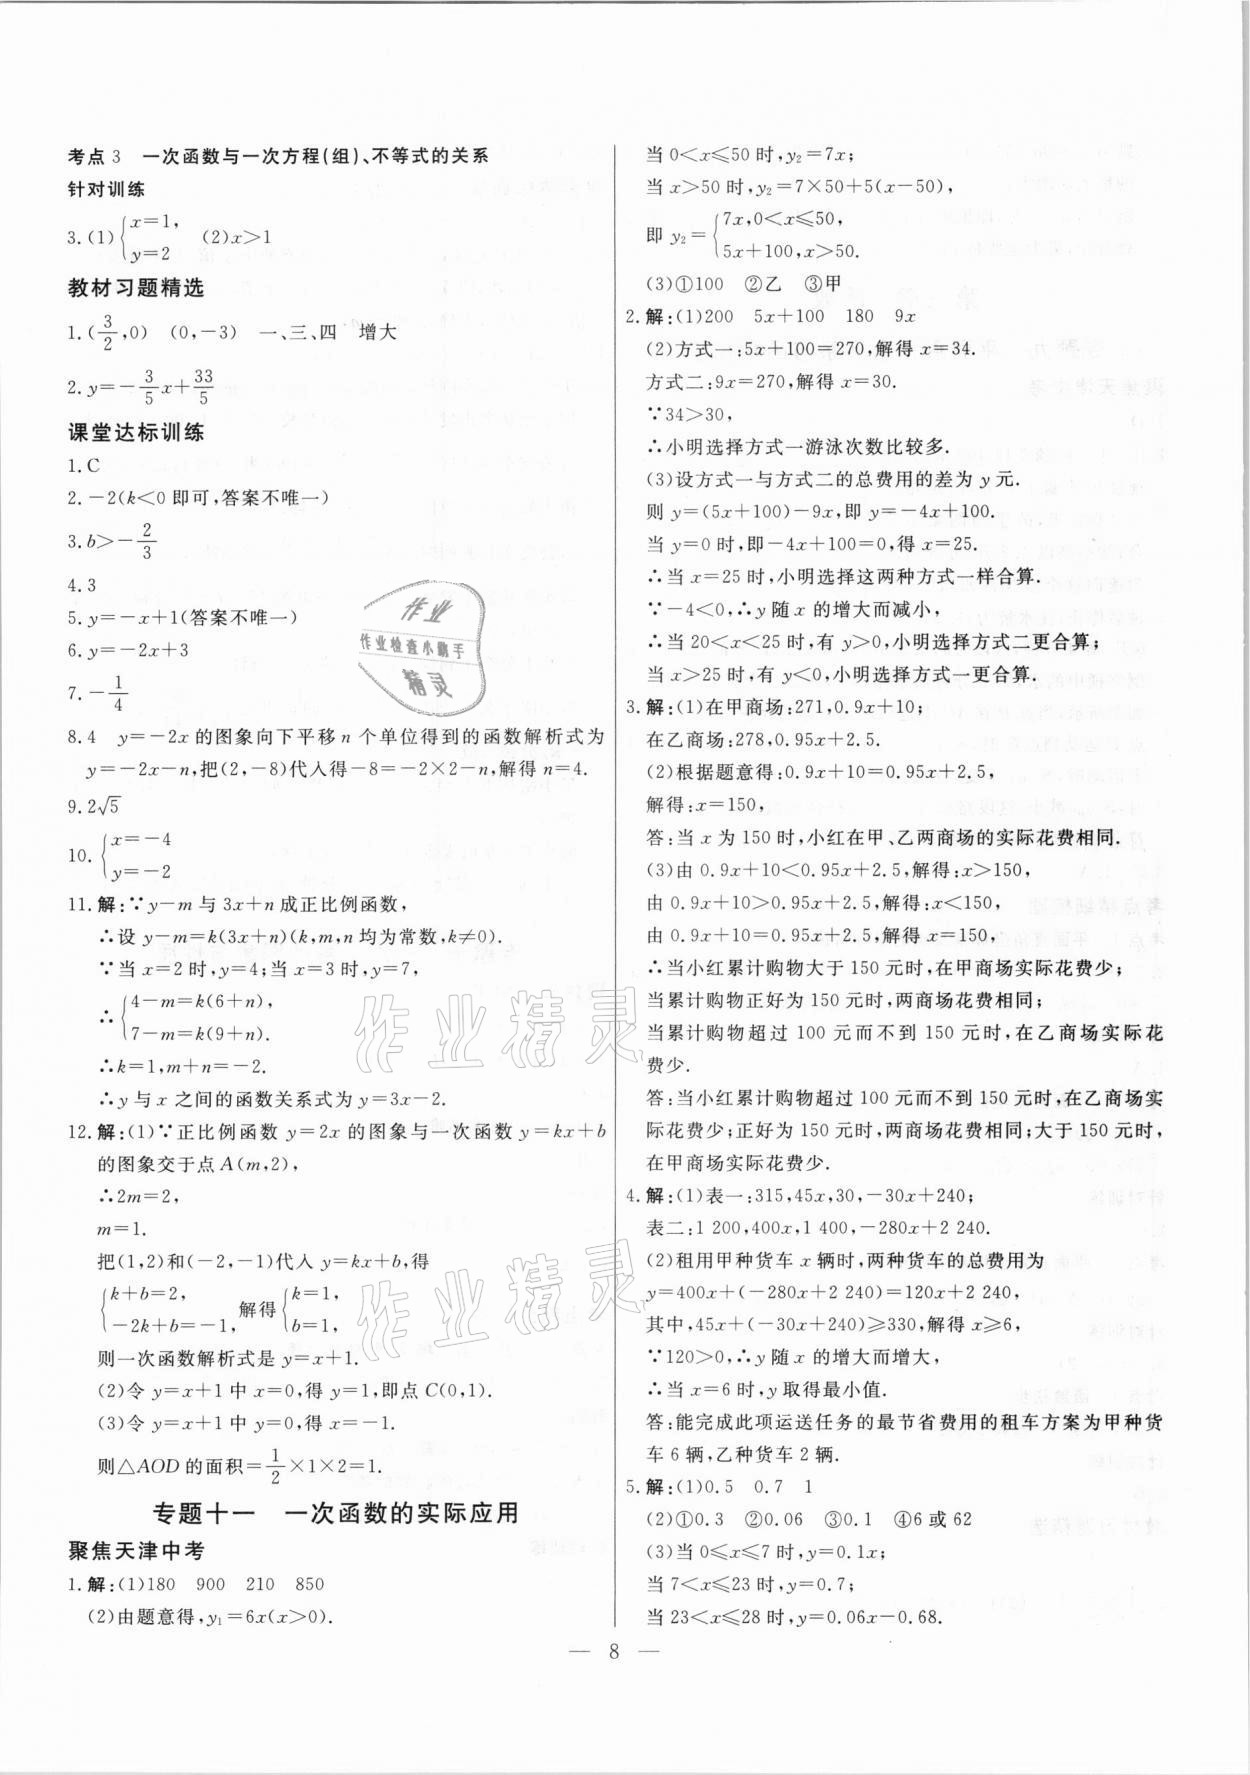 考点 3　一次函数与一次方程(组)、不等式的关系
针对训练
3.(1){x=1, y=2　(2)x>1
教材习题精选
1.(3/2,0)　(0,-3)　一、三、四　增大
2.y=-3/5x+33/5
课堂达标训练
1.C
2.-2(k<0 即可,答案不唯一)
3.b>-2/3
4.3
5.y=-x+1(答案不唯一)
6.y=-2x+3
7.-1/4
8.4　y=-2x 的图象向下平移 n 个单位得到的函数解析式为
y=-2x-n,把(2,-8)代入得-8=-2×2-n,解得 n=4.
9.2√5
10.{x=-4 y=-2
11.解:∵y-m 与 3x+n 成正比例函数,
∴设 y-m=k(3x+n)(k,m,n 均为常数,k≠0).
∵当 x=2 时,y=4;当 x=3 时,y=7,
∴{4-m=k(6+n), 7-m=k(9+n).
∴k=1,m+n=-2.
∴y 与 x 之间的函数关系式为 y=3x-2.
12.解:(1)∵正比例函数 y=2x 的图象与一次函数 y=kx+b
的图象交于点 A(m,2),
∴2m=2,
m=1.
把(1,2)和(-2,-1)代入 y=kx+b,得
{k+b=2, -2k+b=-1, 解得{k=1, b=1.
则一次函数解析式是 y=x+1.
(2)令 y=x+1 中 x=0,得 y=1,即点 C(0,1).
(3)令 y=x+1 中 y=0,得 x=-1.
则△AOD 的面积=1/2×1×2=1.
专题十一　一次函数的实际应用
聚焦天津中考
1.解:(1)180　900　210　850
(2)由题意得,y₁=6x(x>0).
当 0<x≤50 时,y₂=7x;
当 x>50 时,y₂=7×50+5(x-50),
即 y₂={7x,0<x≤50, 5x+100,x>50.
(3)①100　②乙　③甲
2.解:(1)200　5x+100　180　9x
(2)方式一:5x+100=270,解得 x=34.
方式二:9x=270,解得 x=30.
∵34>30,
∴小明选择方式一游泳次数比较多.
(3)设方式一与方式二的总费用的差为 y 元.
则 y=(5x+100)-9x,即 y=-4x+100.
当 y=0 时,即-4x+100=0,得 x=25.
∴当 x=25 时,小明选择这两种方式一样合算.
∵-4<0,∴y 随 x 的增大而减小,
∴当 20<x<25 时,有 y>0,小明选择方式二更合算;
当 x>25 时,有 y<0,小明选择方式一更合算.
3.解:(1)在甲商场:271,0.9x+10;
在乙商场:278,0.95x+2.5.
(2)根据题意得:0.9x+10=0.95x+2.5,
解得:x=150,
答:当 x 为 150 时,小红在甲、乙两商场的实际花费相同.
(3)由 0.9x+10<0.95x+2.5,解得:x>150,
由 0.9x+10>0.95x+2.5,解得:x<150,
由 0.9x+10=0.95x+2.5,解得:x=150.
∴当小红累计购物大于 150 元时,在甲商场实际花费少;
当累计购物正好为 150 元时,两商场花费相同;
当累计购物超过 100 元而不到 150 元时,在乙商场实际花
费少.
答:当小红累计购物超过 100 元而不到 150 元时,在乙商场实
际花费少;正好为 150 元时,两商场花费相同;大于 150 元时,
在甲商场实际花费少.
4.解:(1)表一:315,45x,30,-30x+240;
表二:1 200,400x,1 400,-280x+2 240.
(2)租用甲种货车 x 辆时,两种货车的总费用为
y=400x+(-280x+2 240)=120x+2 240,
其中,45x+(-30x+240)≥330,解得 x≥6,
∵120>0,∴y 随 x 的增大而增大,
∴当 x=6 时,y 取得最小值.
答:能完成此项运送任务的最节省费用的租车方案为甲种货
车 6 辆,乙种货车 2 辆.
5.解:(1)0.5　0.7　1
(2)①0.3　②0.06　③0.1　④6 或 62
(3)当 0≤x≤7 时,y=0.1x;
当 7<x≤23 时,y=0.7;
当 23<x≤28 时,y=0.06x-0.68.
— 8 —
作业
作业检查小助手
精灵
作业精灵
作业精灵